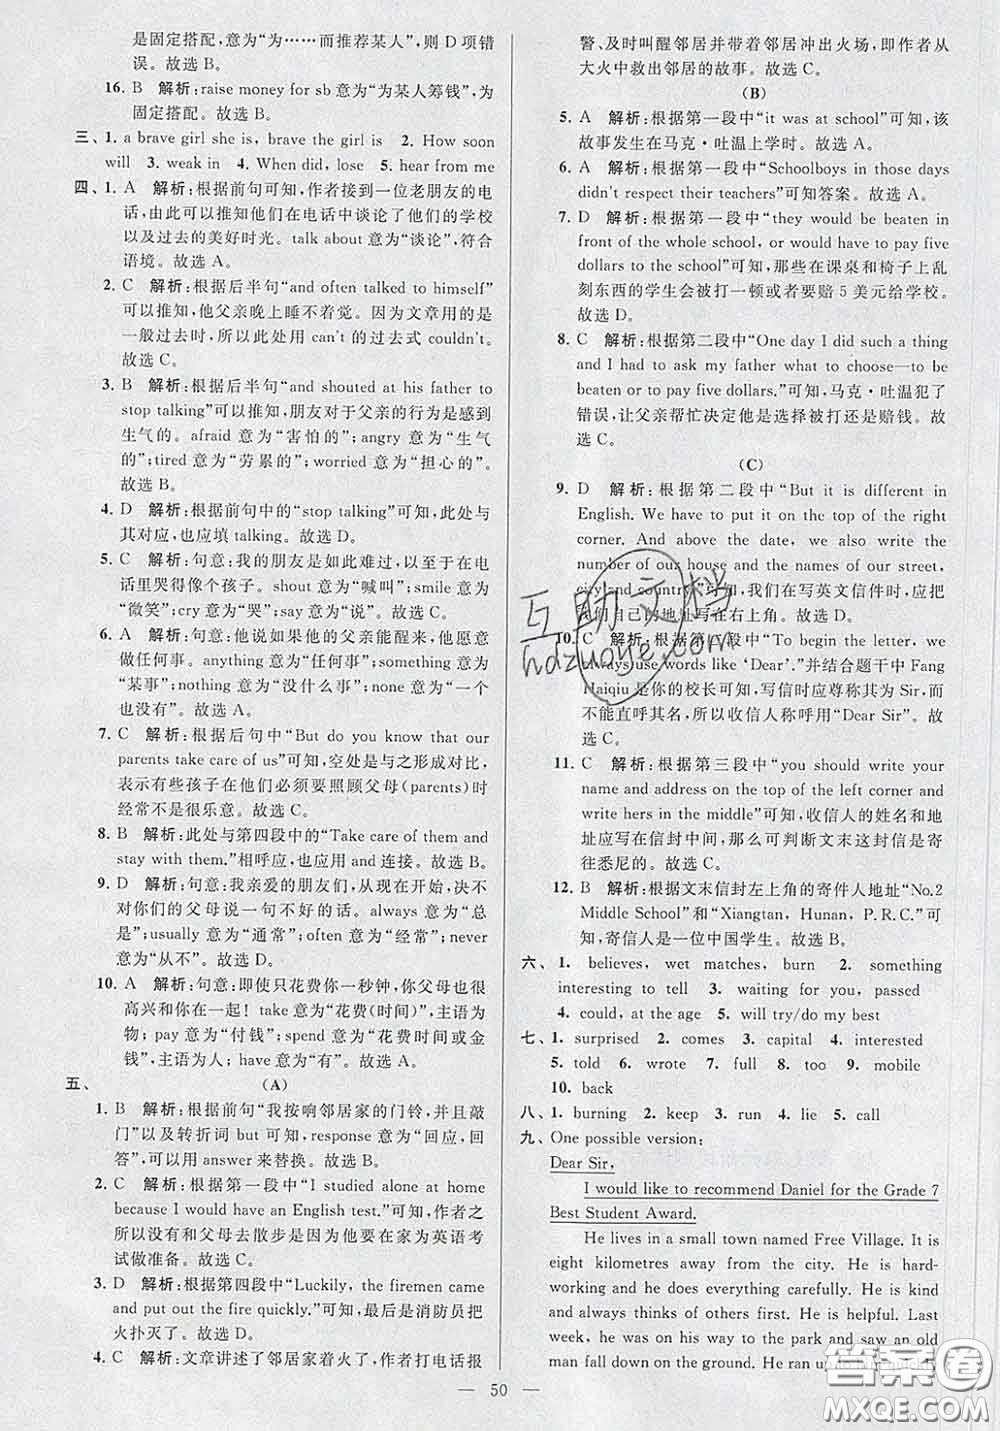 是固定搭配,意为“为……而推荐某人”,则 D 项错
误。故选 B。
16. B 解析:raise money for sb 意为“为某人筹钱”,为
固定搭配。故选 B。
三、1. a brave girl she is, brave the girl is 2. How soon
will 3. weak in 4. When did, lose 5. hear from me
四、1. A 解析:根据前句可知,作者接到一位老朋友的电
话,由此可以推知他们在电话中谈论了他们的学校
以及过去的美好时光。talk about 意为“谈论”,符合
语境。故选 A。
2. C 解析:根据后半句“and often talked to himself”
可以推知,他父亲晚上睡不着觉。因为文章用的是
一般过去时,所以此处用 can't 的过去式 couldn't。
故选 C。
3. B 解析:根据后半句“and shouted at his father to
stop talking”可以推知,朋友对于父亲的行为是感到
生气的。afraid 意为“害怕的”;angry 意为“生气
的”;tired 意为“劳累的”;worried 意为“担心的”。
故选 B。
4. D 解析:根据前句中的“stop talking”可知,此处与
其对应,也应填 talking。故选 D。
5. C 解析:句意:我的朋友是如此难过,以至于在电
话里哭得像个孩子。shout 意为“喊叫”;smile 意为
“微笑”;cry 意为“哭”;say 意为“说”。故选 C。
6. A 解析:句意:他说如果他的父亲能醒来,他愿意
做任何事。anything 意为“任何事”;something 意为
“某事”;nothing 意为“没什么事”;none 意为“一个
也没有”。故选 A。
7. C 解析:根据后句中“But do you know that our
parents take care of us”可知,空处是与之形成对比,
表示有些孩子在他们必须要照顾父母(parents)时
经常不是很乐意。故选 C。
8. B 解析:此处与第四段中的“Take care of them and
stay with them.”相呼应,也应用 and 连接。故选 B。
9. D 解析:句意:我亲爱的朋友们,从现在开始,决不
对你们的父母说一句不好的话。always 意为“总
是”;usually 意为“通常”;often 意为“经常”;never
意为“从不”。故选 D。
10. A 解析:句意:即使只花费你一秒钟,你父母也很
高兴和你在一起!take 意为“花费(时间)”,主语为
物;pay 意为“付钱”;spend 意为“花费时间或金
钱”,主语为人;have 意为“有”。故选 A。
五、 (A)
1. B 解析:根据前句“我按响邻居家的门铃,并且敲
门”以及转折词 but 可知,response 意为“回应,回
答”,可以用 answer 来替换。故选 B。
2. C 解析:根据第一段中“I studied alone at home
because I would have an English test.”可知,作者之
所以没有和父母去散步是因为他要在家为英语考
试做准备。故选 C。
3. D 解析:根据第四段中“Luckily, the firemen came
and put out the fire quickly.”可知,最后是消防员把
火扑灭了。故选 D。
4. C 解析:文章讲述了邻居家着火了,作者打电话报
警、及时叫醒邻居并带着邻居冲出火场,即作者从
大火中救出邻居的故事。故选 C。
(B)
5. A 解析:根据第一段中“it was at school”可知,该
故事发生在马克·吐温上学时。故选 A。
6. A 解析:根据第一段中“Schoolboys in those days
didn't respect their teachers”可知答案。故选 A。
7. D 解析:根据第一段中“they would be beaten in
front of the whole school, or would have to pay five
dollars to the school”可知,那些在课桌和椅子上乱
刻东西的学生会被打一顿或者要赔 5 美元给学校。
故选 D。
8. C 解析:根据第二段中“One day I did such a thing
and I had to ask my father what to choose—to be
beaten or to pay five dollars.”可知,马克·吐温犯了
错误,让父亲帮忙决定他是选择被打还是赔钱。故
选 C。
(C)
9. D 解析:根据第二段中“But it is different in
English. We have to put it on the top of the right
corner. And above the date, we also write the
number of our house and the names of our street,
city and country”可知,我们在写英文信件时,应
把自己的地址写在右上角。故选 D。
10. C 解析:根据第一段中“To begin the letter, we
always use words like ‘Dear’.”并结合题干中 Fang
Haiqiu 是你的校长可知,写信时应尊称其为 Sir,而
不能直呼其名。所以收信人称呼用“Dear Sir”。故
选 C。
11. C 解析:根据第三段中“you should write your
name and address on the top of the left corner and
write hers in the middle”可知,收信人的姓名和地
址应写在信封中间,那么可判断文末这封信是寄
往悉尼的。故选 C。
12. B 解析:根据文末信封左上角的寄件人地址“No.2
Middle School”和“Xiangtan, Hunan, P.R.C.”可
知,寄信人是一位中国学生。故选 B。
六、1. believes, wet matches, burn 2. something
interesting to tell 3. waiting for you, passed
4. could, at the age 5. will try/do my best
七、1. surprised 2. comes 3. capital 4. interested
5. told 6. wrote 7. full 8. too 9. mobile
10. back
八、1. burning 2. keep 3. run 4. lie 5. call
九、One possible version:
Dear Sir,
I would like to recommend Daniel for the Grade 7
Best Student Award.
He lives in a small town named Free Village. It is
eight kilometres away from the city. He is hard-
working and always does his best. He is kind
and always thinks of others first. He is helpful. Last
week, he was on his way to the park and saw an old
man fall down on the ground. He ran
— 50 —
互助文档
hdzuoye.com
答案圈
MXQE.COM